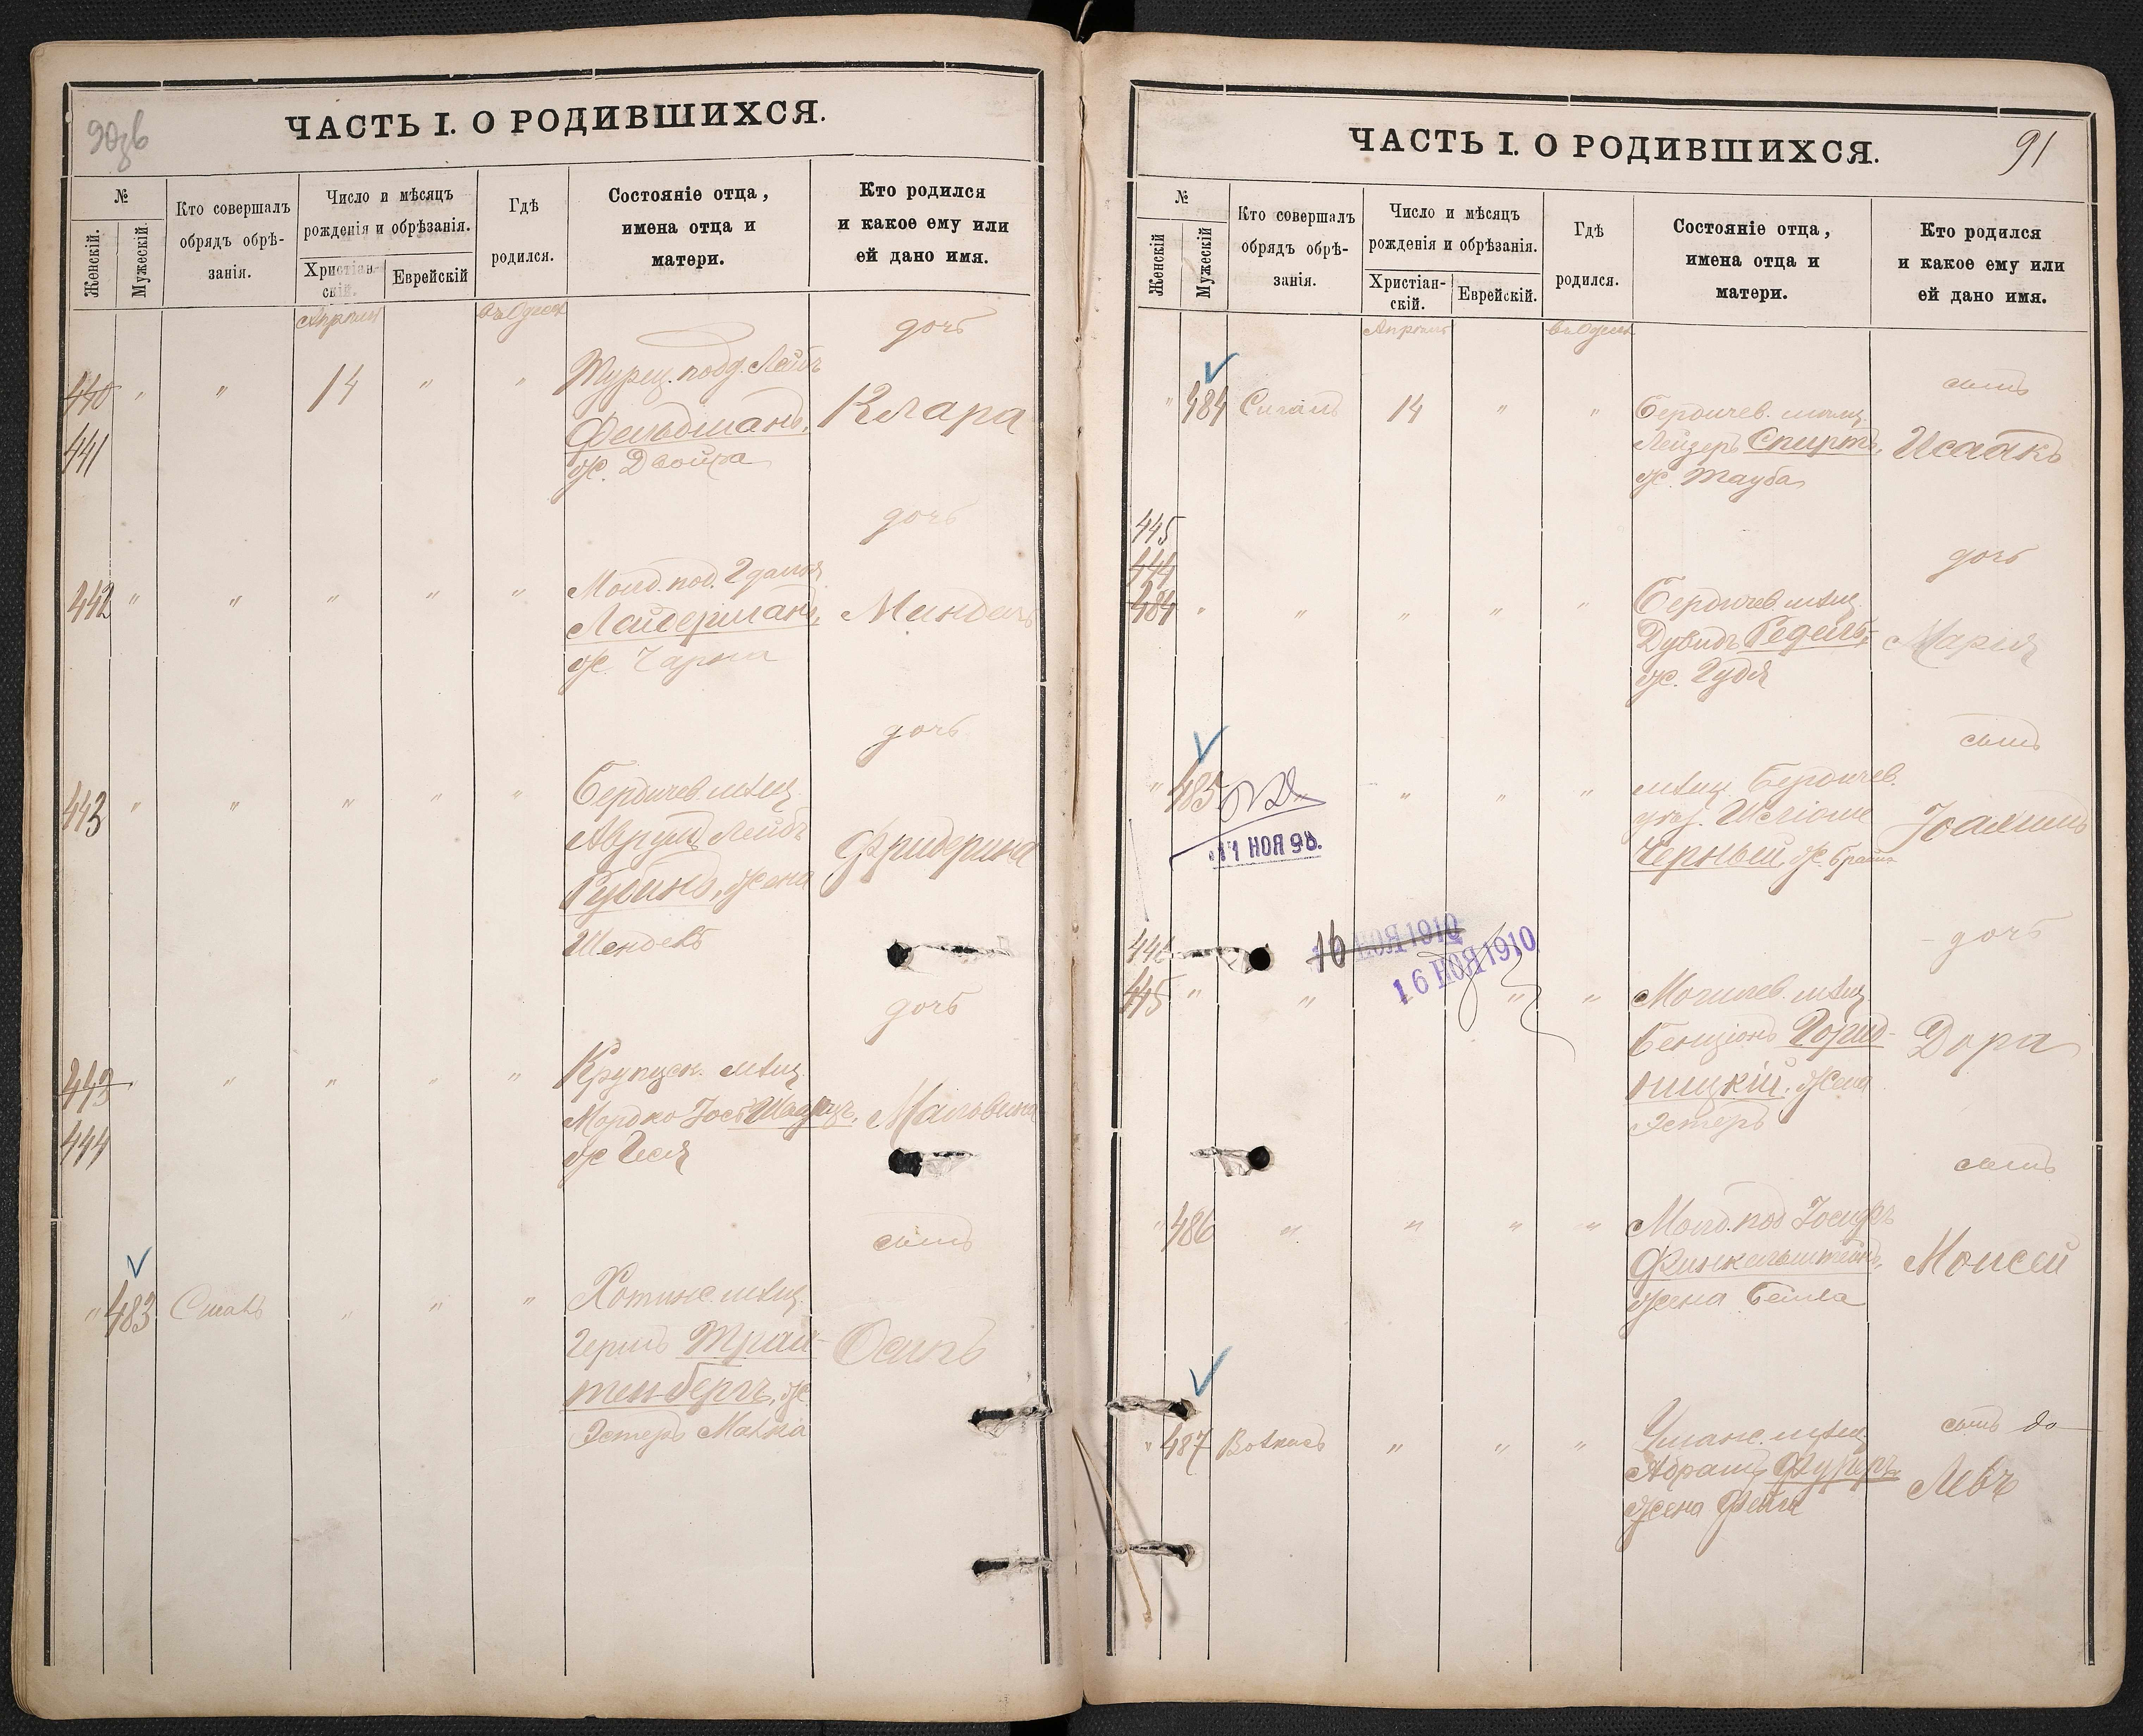 90зв
ЧАСТЬ I. О РОДИВШИХСЯ.
№
Женскій.
Мужескій
Кто совершалъ
обрядъ обрѣ-
занія.
Число и мѣсяцъ
рожденія и обрѣзанія.
Христіан-
скій.
Еврейскій
Гдѣ
родился.
Состояніе отца,
имена отца и
матери.
Кто родился
и какое ему или
ей дано имя.
Апрѣль
въ Одессѣ
дочь
440 " " 14 " " Турец. подд. Лейбъ
441
Фельдманъ,
ж. Двойра
Клара
дочь
442 " " " " " Молд. под.
Лейдерманъ,
ж. Чарна
Миндель
дочь
443 " " " " " Бердичев. мѣщ.
Аврумъ Лейбъ
Рубинъ, жена
Шендель
дочь
443 " " " " " мѣщ.
444
Мордко
ж Геся
Мальвина
сынъ
" 483 " " " Хотинс. мѣщ.
Гершъ Трай-
тенбергъ, ж
Эстеръ Малка
Осипъ
91
ЧАСТЬ I. О РОДИВШИХСЯ.
№
Женскій
Мужескій
Кто совершалъ
обрядъ обрѣ-
занія.
Число и мѣсяцъ
рожденія и обрѣзанія.
Христіан-
скій.
Еврейскій.
Гдѣ
родился.
Состояніе отца,
имена отца и
матери.
Кто родился
и какое ему или
ей дано имя.
Апрѣль
въ Одессѣ
сынъ
" 484 14 " " Бердичев. мѣщ.
Лейзеръ Спиртъ,
ж. Тауба
Исаакъ
445
444
484 " " " " "
дочь
Бердичев. мѣщ.
Дувидъ
ж. Гудя
Марія
сынъ
" 485 " " " "
17 НОЯ 98.
мѣщ. Бердичев.
Черный, ж.
дочь
446
16 НОЯ 1910
16 НОЯ 1910
445 " " " "
Могилев. мѣщ.
Бенціонъ
жена
Эстеръ
Дора
сынъ
" 486 " " " " Молд. под Іосифъ
Финкельштейнъ,
жена Бейла
Моисей
сынъ
" 487 " " " Уманс. мѣщ.
Абрамъ Фуреръ
жена Фейга
Левъ